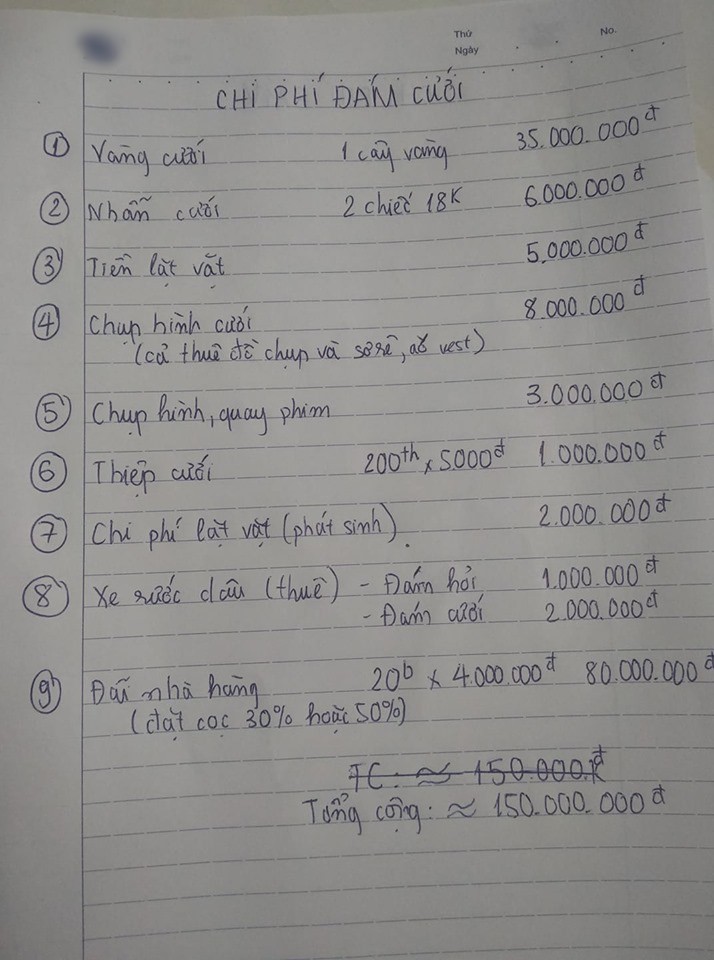 Thứ
No.
Ngày
CHI PHÍ ĐÁM CƯỚI
① Vàng cưới 1 cây vàng 35.000.000đ
② Nhẫn cưới 2 chiếc 18K 6.000.000đ
③ Tiền lặt vặt 5.000.000đ
④ Chụp hình cưới 8.000.000đ
(cả thuê đồ chụp và sơrê, áo vest)
⑤ Chụp hình, quay phim 3.000.000đ
⑥ Thiệp cưới 200th x 5000đ 1.000.000đ
⑦ Chi phí lặt vặt (phát sinh). 2.000.000đ
⑧ Xe rước dâu (thuê) - Đám hỏi 1.000.000đ
- Đám cưới 2.000.000đ
⑨ Đãi nhà hàng 20b x 4.000.000đ 80.000.000đ
(đặt cọc 30% hoặc 50%)
TC: ≈ 150.000.Kđ
Tổng cộng: ≈ 150.000.000đ